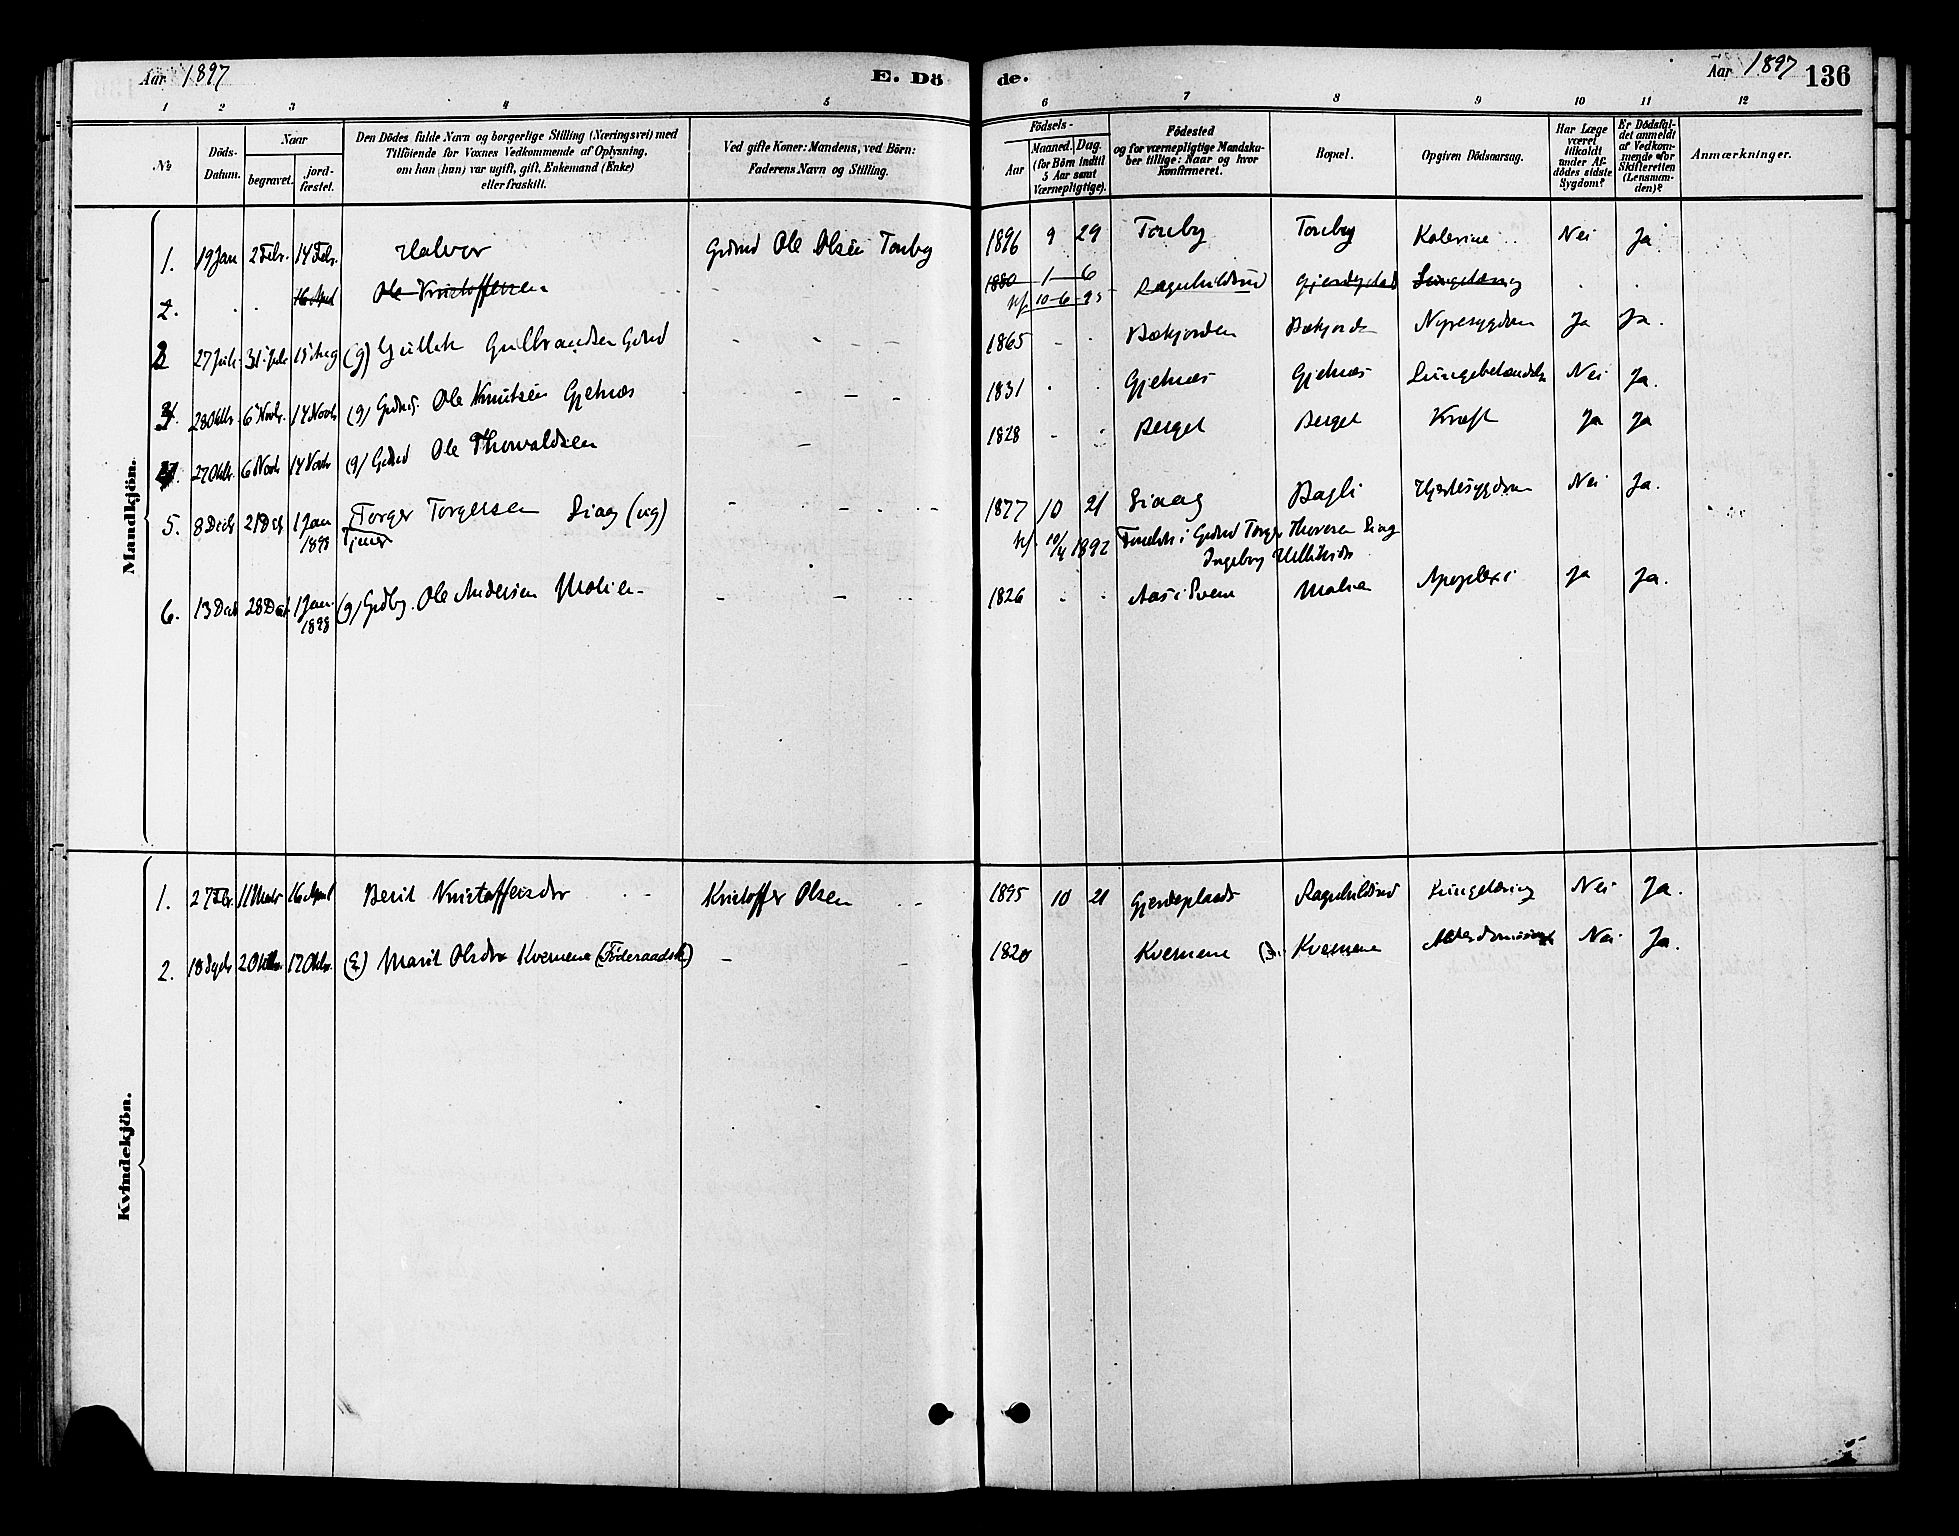 Aar 1897 E. Dö de. Aar 1897 136
1 2 3 4 5 6 7 8 9 10 11 12
No
Döds-Datum.
Naar
begravet.
jord-fæstet.
Den Dödes fulde Navn og borgerlige Stilling (Næringsvei) med
Tilföiende for Voxnes Vedkommende af Oplysning,
om han (hun) var ugift, gift, Enkemand (Enke)
eller fraskilt.
Ved gifte Koner: Mandens, ved Börn:
Faderens Navn og Stilling.
Födsels-
Aar
Maaned. Dag.
(for Börn indtil
5 Aar samt
Værnepligtige).
Födested
og for værnepligtige Mandska-
ber tillige: Naar og hvor
konfirmeret.
Bopæl.
Opgiven Dödsaarsag.
Har Læge
været
tilkaldt
under Af-
dödes sidste
Sygdom?
Er Dödsfal-
det anmeldt
af Vedkom-
mende for
Skifteretten
(Lensman-
den)?
Anmærkninger.
Mandkjön.
1. 19 Jan 2 Febr. 14 Febr. Halvor Grdmd Ole Olsen Tonby 1896 9 29 Tonby Tonby Kolerine Nei Ja
2. 16 April Ole Kristoffersen 1880 1 6 Ragnhildrud
10-6-95
3 27 Juli 31 Juli 15 Aug (g) Gullik Gulbrandsen Grdmd 1865 Bækjorden Bækjorden Nyresygdom Ja Ja.
28 Oktbr. 6 Novbr. 14 Novbr (g) Ole Knutsen Gjelnæs 1831 Gjelnæs Gjelnæs Lungebetændelse Nei Ja.
27 Oktbr. 6 Novbr 14 Novbr (g) Grdmd Ole Thorvaldsen 1828 Berget Berget Kræft Ja Ja
5. 8 Decb 21 Dcb 1 Jan 1898 Torger Torgersen (ug) 1877 10 21 Bagli Hjertesygdom Nei Ja.
Tjener
10/4 1892 Grdmd Torger Thoresen
Ingeborg
6. 13 Decb 28 Dcb 1 Jan. 1898 (g) Grdbr. Ole Andersen Molien 1826 Molien Apoplexi Ja Ja.
Kvindekjön.
1. 27 Febr. 11 Marts 16 April Berit Kristoffersdtr Kristoffer Olsen 1895 10 21 Gjerdeplads Ragnhildrud Lungetæring Nei Ja.
2. 18 Sept 2 Oktbr 17 Oktbr. (E) Marit Olsdtr Kvernene (Föderaadsk.) 1820 Kvernene Kvernene Alderdom Nei Ja.